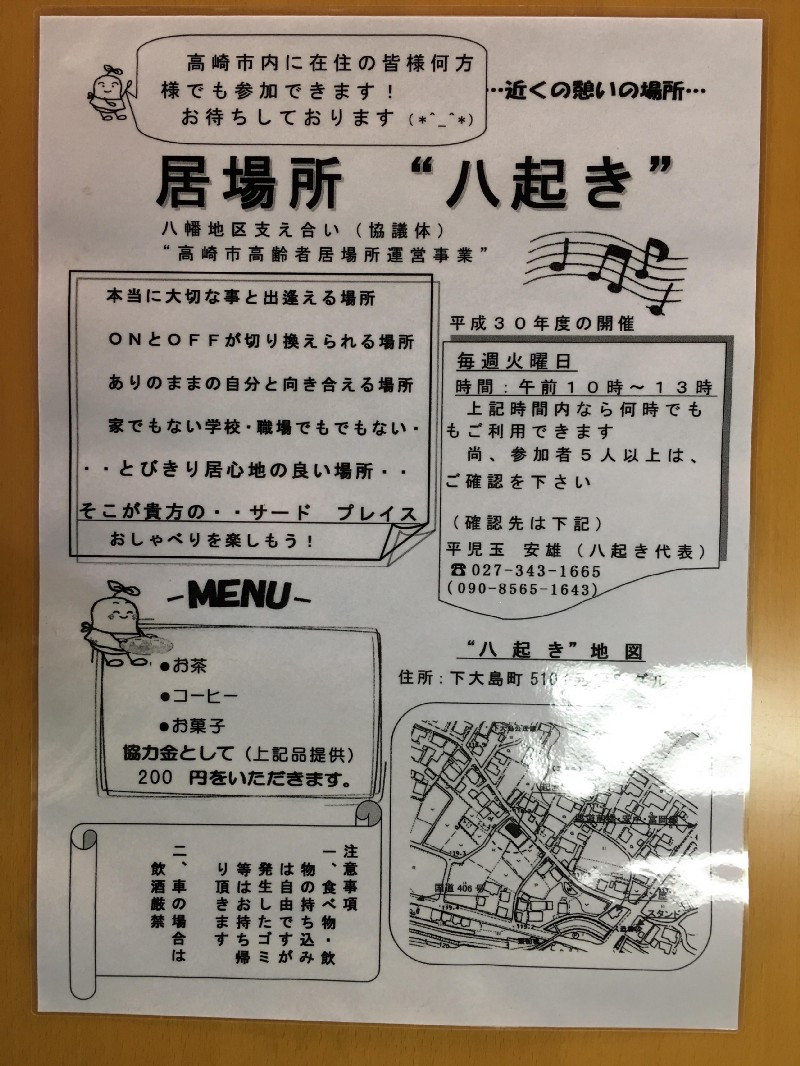 高崎市内に在住の皆様何方
様でも参加できます！
お待ちしております（*^_^*）
…近くの憩いの場所…
居場所 “八起き”
八幡地区支え合い（協議体）
“高崎市高齢者居場所運営事業”
本当に大切な事と出逢える場所
ＯＮとＯＦＦが切り換えられる場所
ありのままの自分と向き合える場所
家でもない学校・職場でもでもない・
・・とびきり居心地の良い場所・・
そこが貴方の・・サード プレイス
おしゃべりを楽しもう！
平成３０年度の開催
毎週火曜日
時間：午前１０時～１３時
上記時間内なら何時でも
もご利用できます
尚、参加者５人以上は、
ご確認を下さい
（確認先は下記）
平児玉 安雄（八起き代表）
☎027-343-1665
（090-8565-1643）
-MENU-
●お茶
●コーヒー
●お菓子
協力金として（上記品提供）
200 円をいただきます。
注意事項
一、食べ物・飲
物の持ち込み
は自由ですが
発生したゴミ
等はお持ち帰
り頂きます
二、車の場合は
飲酒厳禁
“八起き”地図
住所：下大島町 510
国道 406 号
スタンド